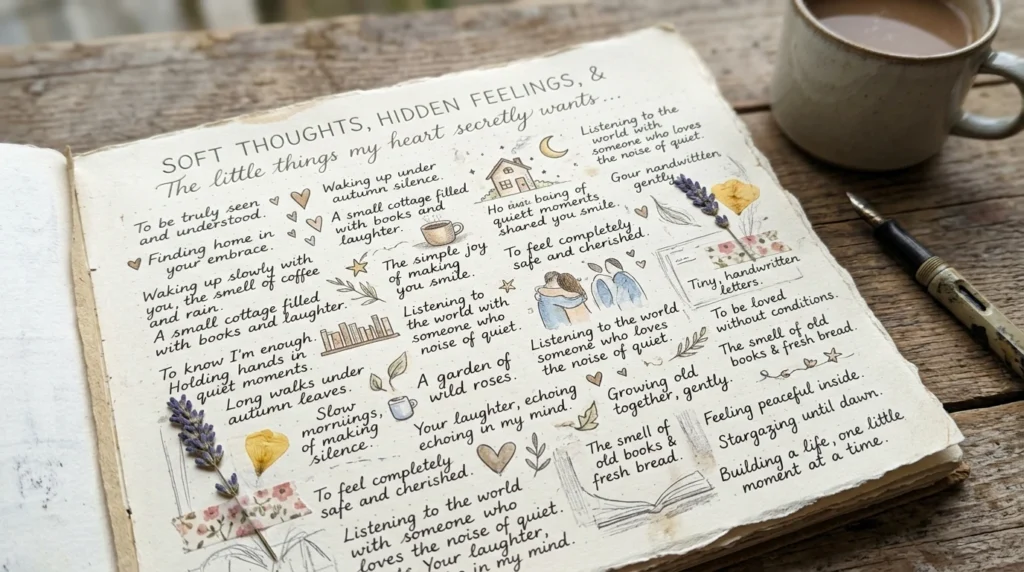 SOFT THOUGHTS, HIDDEN FEELINGS, &
The little things my heart secretly wants...
To be truly seen
and understood.
Finding home in
your embrace.
Waking up slowly with
you, the smell of coffee
and rain.
A small cottage filled
with books and laughter.
To know I'm enough.
Holding hands in
quiet moments.
Long walks under
autumn leaves.
Slow
mornings,
of making
silence
To feel completely
safe and cherished.
Listening to the world
with someone who
loves the noise of quiet.
Your laughter,
in my mind.
Waking up under
autumn silence.
A small cottage filled
with books and
laughter.
The simple joy
of making
you smile.
Listening to
the world with
someone who
noise of quiet.
A garden of
wild roses.
Your laughter, echoing
echoing in my mind.
Ho being of
quiett moments
shared you smile.
To feel completely
safe and cherished.
Listening to the world
someone who loves
the noise of quiet.
Growing old
together, gently.
The smell of
old books &
fresh bread.
Listening to the
world with
someone who loves
the noise of quiet.
Gour nandwittten
gently.
Tiny, handwritten
letters.
To be loved
without conditions.
The smell of old
books & fresh bread.
Feeling peaceful inside.
Stargazing until dawn.
Building a life, one little
moment at a time.